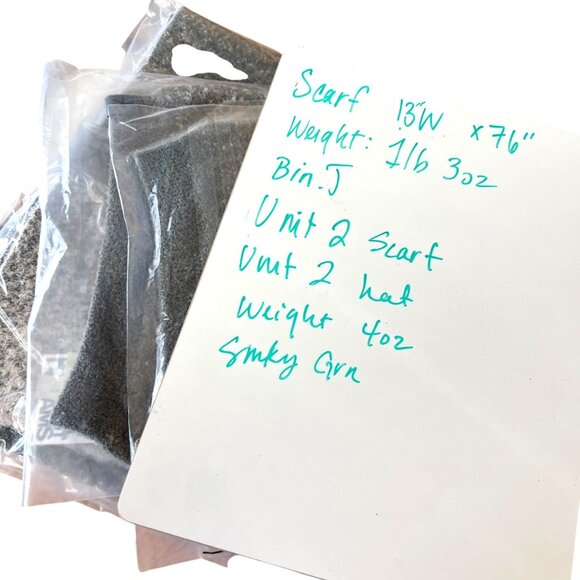 Scarf 13"W x 76"
Weight: 1lb 3oz
Bin. J
Unit 2 Scarf
Unit 2 hat
Weight 4oz
Smky Grn